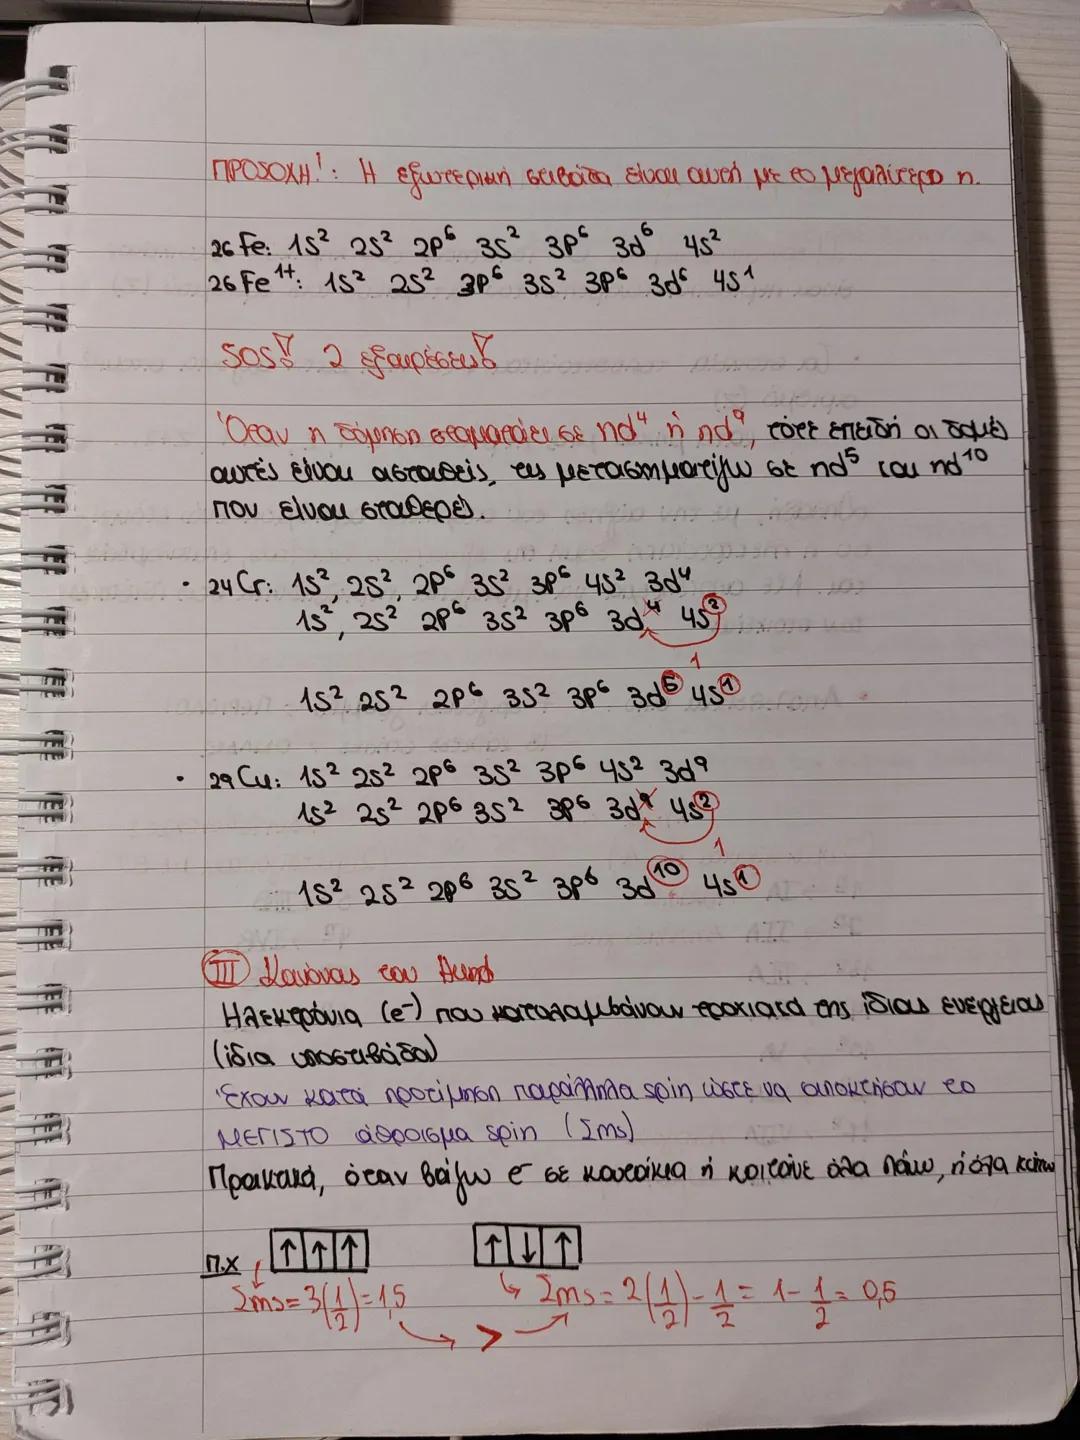 ΠΡΟΣΟΧΗ!: Η εξωτερική στιβάδα είναι αυτή με το μεγαλύτερο n.
₂₆Fe: 1s² 2s² 2p⁶ 3s² 3p⁶ 3d⁶ 4s²
₂₆Fe¹⁺: 1s² 2s² 2p⁶ 3s² 3p⁶ 3d⁶ 4s¹
SOS! 2 εξαιρέσεις!
Όταν η δόμηση σταματάει σε nd⁴ ή nd⁹, τότε επειδή οι δομές
αυτές είναι ασταθείς, τις μετασχηματίζω σε nd⁵ και nd¹⁰
που είναι σταθερές.
• ₂₄Cr: 1s², 2s², 2p⁶ 3s² 3p⁶ 4s² 3d⁴
1s², 2s² 2p⁶ 3s² 3p⁶ 3d⁴ 4s²
1
1s² 2s² 2p⁶ 3s² 3p⁶ 3d⁵ 4s¹
• ₂₉Cu: 1s² 2s² 2p⁶ 3s² 3p⁶ 4s² 3d⁹
1s² 2s² 2p⁶ 3s² 3p⁶ 3d⁹ 4s²
1
1s² 2s² 2p⁶ 3s² 3p⁶ 3d¹⁰ 4s¹
III Κανόνας του Hund
Ηλεκτρόνια (e⁻) που καταλαμβάνουν τροχιακά της ίδιας ενέργειας
(ίδια υποστιβάδα)
Έχουν κατά προτίμηση παράλληλα spin ώστε να αποκτήσουν το
ΜΕΓΙΣΤΟ άθροισμα spin (Σms)
Πρακτικά, όταν βάζω e⁻ σε κουτάκια ή κοιτάνε όλα πάνω, ή όλα κάτω
π.χ ↑ ↑ ↑ ↑ ↓ ↑
Σms = 3(1/2) = 1,5 > Σms = 2(1/2) - 1/2 = 1 - 1/2 = 0,5